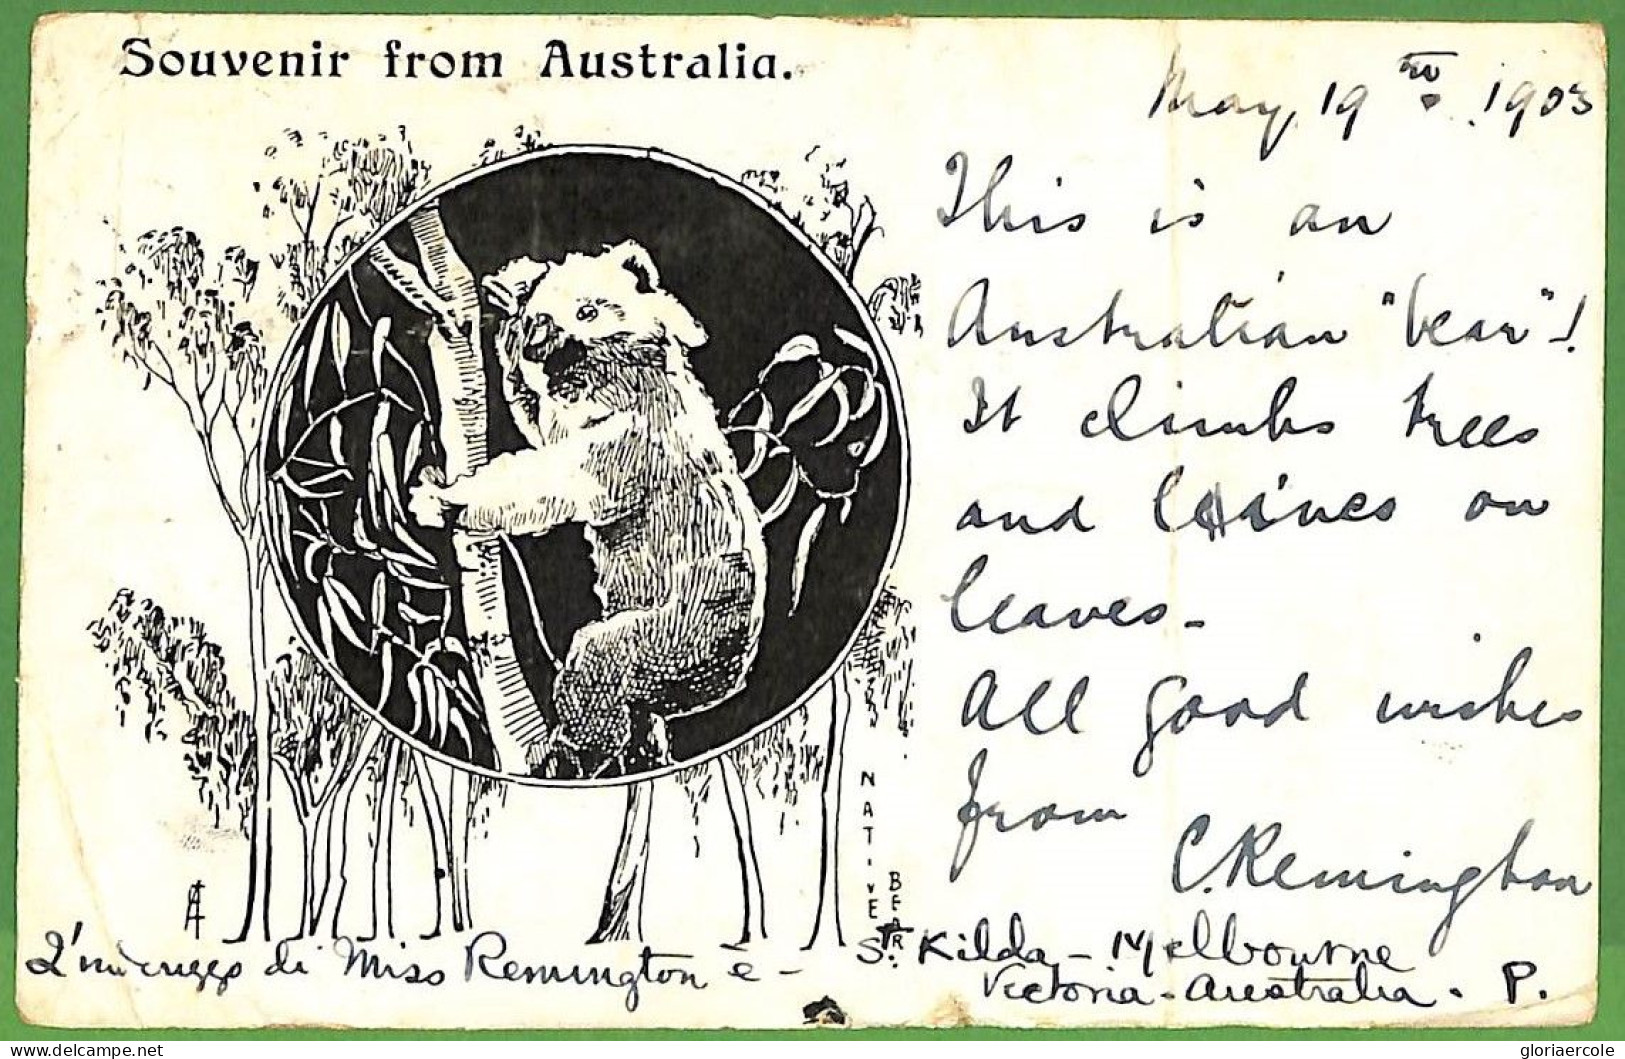 Souvenir from Australia.
May 19th. 1903
This is an
Australian "bear"!
It climbs trees
and lives on
leaves -
All good wishes
from
C. Remington
NATIVE
BEAR
L'indirizzo di Miss Remington è - St. Kilda - Melbourne
Victoria - Australia. P.
delcampe.net
gloriaercole